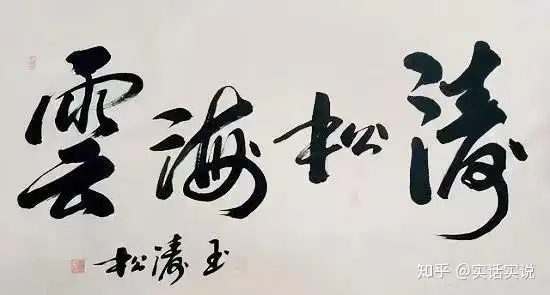 雲海松涛
松涛玉
知乎 @实话实说